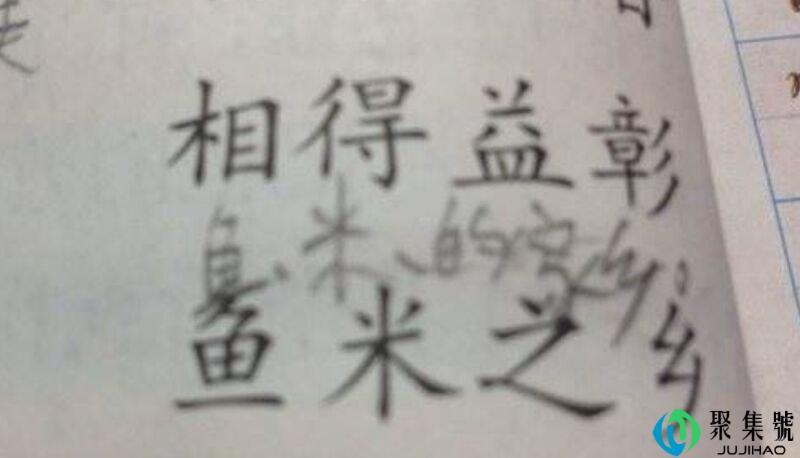 相得益彰
鱼、米、的家乡。
鱼米之乡
聚集號
JUJIHAO